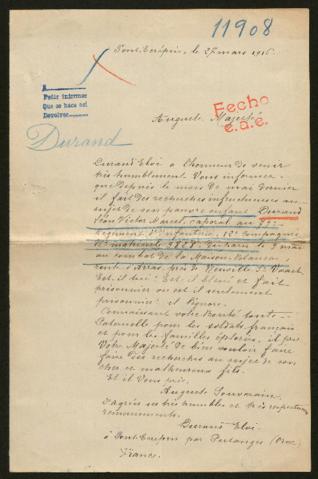 11908
A
Pedir informes
Que se hace así
Devolver
Fecho
e.a.e.
Durand
Pont Evêpin, le 27 mars 1916.
Auguste Majesté
Durand Eloi a l'honneur de venir
très humblement Vous informer
que depuis le mois de mai dernier
il fait des recherches infructueuses au
sujet de son pauvre enfant Durand
Léon Victor Marcel, caporal au
Régiment d'Infanterie, 12e compagnie
No matricule disparu le 9 mai
au combat de la Maison Blanche
route d'Arras, près de Neuville St Vaast.
Est-il tué? Est-il blessé et fait
prisonnier ou est-il seulement
prisonnier: il l'ignore.
Connaissant votre Bonté toute
Paternelle pour les soldats français
et pour les familles éplorées, il prie
Votre Majesté de bien vouloir faire
faire des recherches au sujet de son
cher et malheureux fils.
Et il Vous prie,
Auguste Souverain,
d'agréer ses très humbles et très respectueux
remerciements.
Durand Eloi
à par (Orne)
France.